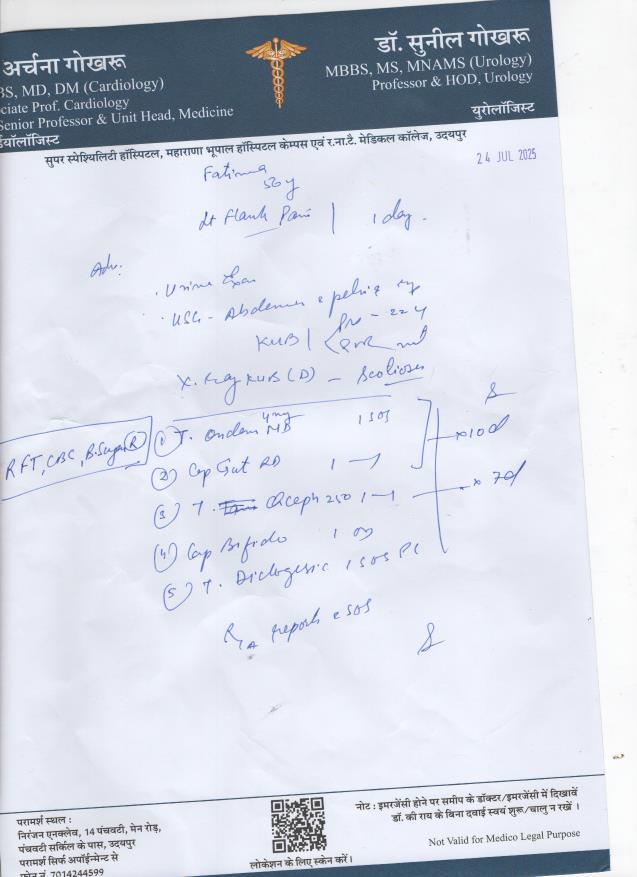 अर्चना गोखरू
BS, MD, DM (Cardiology)
ciate Prof. Cardiology
Senior Professor & Unit Head, Medicine
र्डयॉलॉजिस्ट
डॉ. सुनील गोखरू
MBBS, MS, MNAMS (Urology)
Professor & HOD, Urology
यूरोलॉजिस्ट
सुपर स्पेश्यिलिटी हॉस्पिटल, महाराणा भूपाल हॉस्पिटल केम्पस एवं र.ना.टै. मेडिकल कॉलेज, उदयपुर
24 JUL 2025
Fatima
56y
Lt Flank Pain | 1 day.
Adv:
. Urine Exam
. USG - Abdomen & pelvis
KUB | Pre - 224
PVR
X. Ray KUB (D) - Scoliosis
RFT, CBC, B. Sugar (R)
(1) T. Ondem 4mg MD 1 SOS
(2) Cap Gut RD 1 — 1
x 10d
(3) T. Qceph 250 1 — 1 x 7d
(4) Cap Bifido 1 OD
(5) T. Diclogesic 1 SOS PC
R/A reports & SOS
परामर्श स्थल :
निरंजन एनक्लेव, 14 पंचवटी, मेन रोड़,
पंचवटी सर्किल के पास, उदयपुर
परामर्श सिर्फ अपॉईन्मेन्ट से
फोन नं. 7014244599
लोकेशन के लिए स्केन करें।
नोट : इमरजेंसी होने पर समीप के डॉक्टर/इमरजेंसी में दिखावें
डॉ. की राय के बिना दवाई स्वयं शुरू/चालु न रखें ।
Not Valid for Medico Legal Purpose